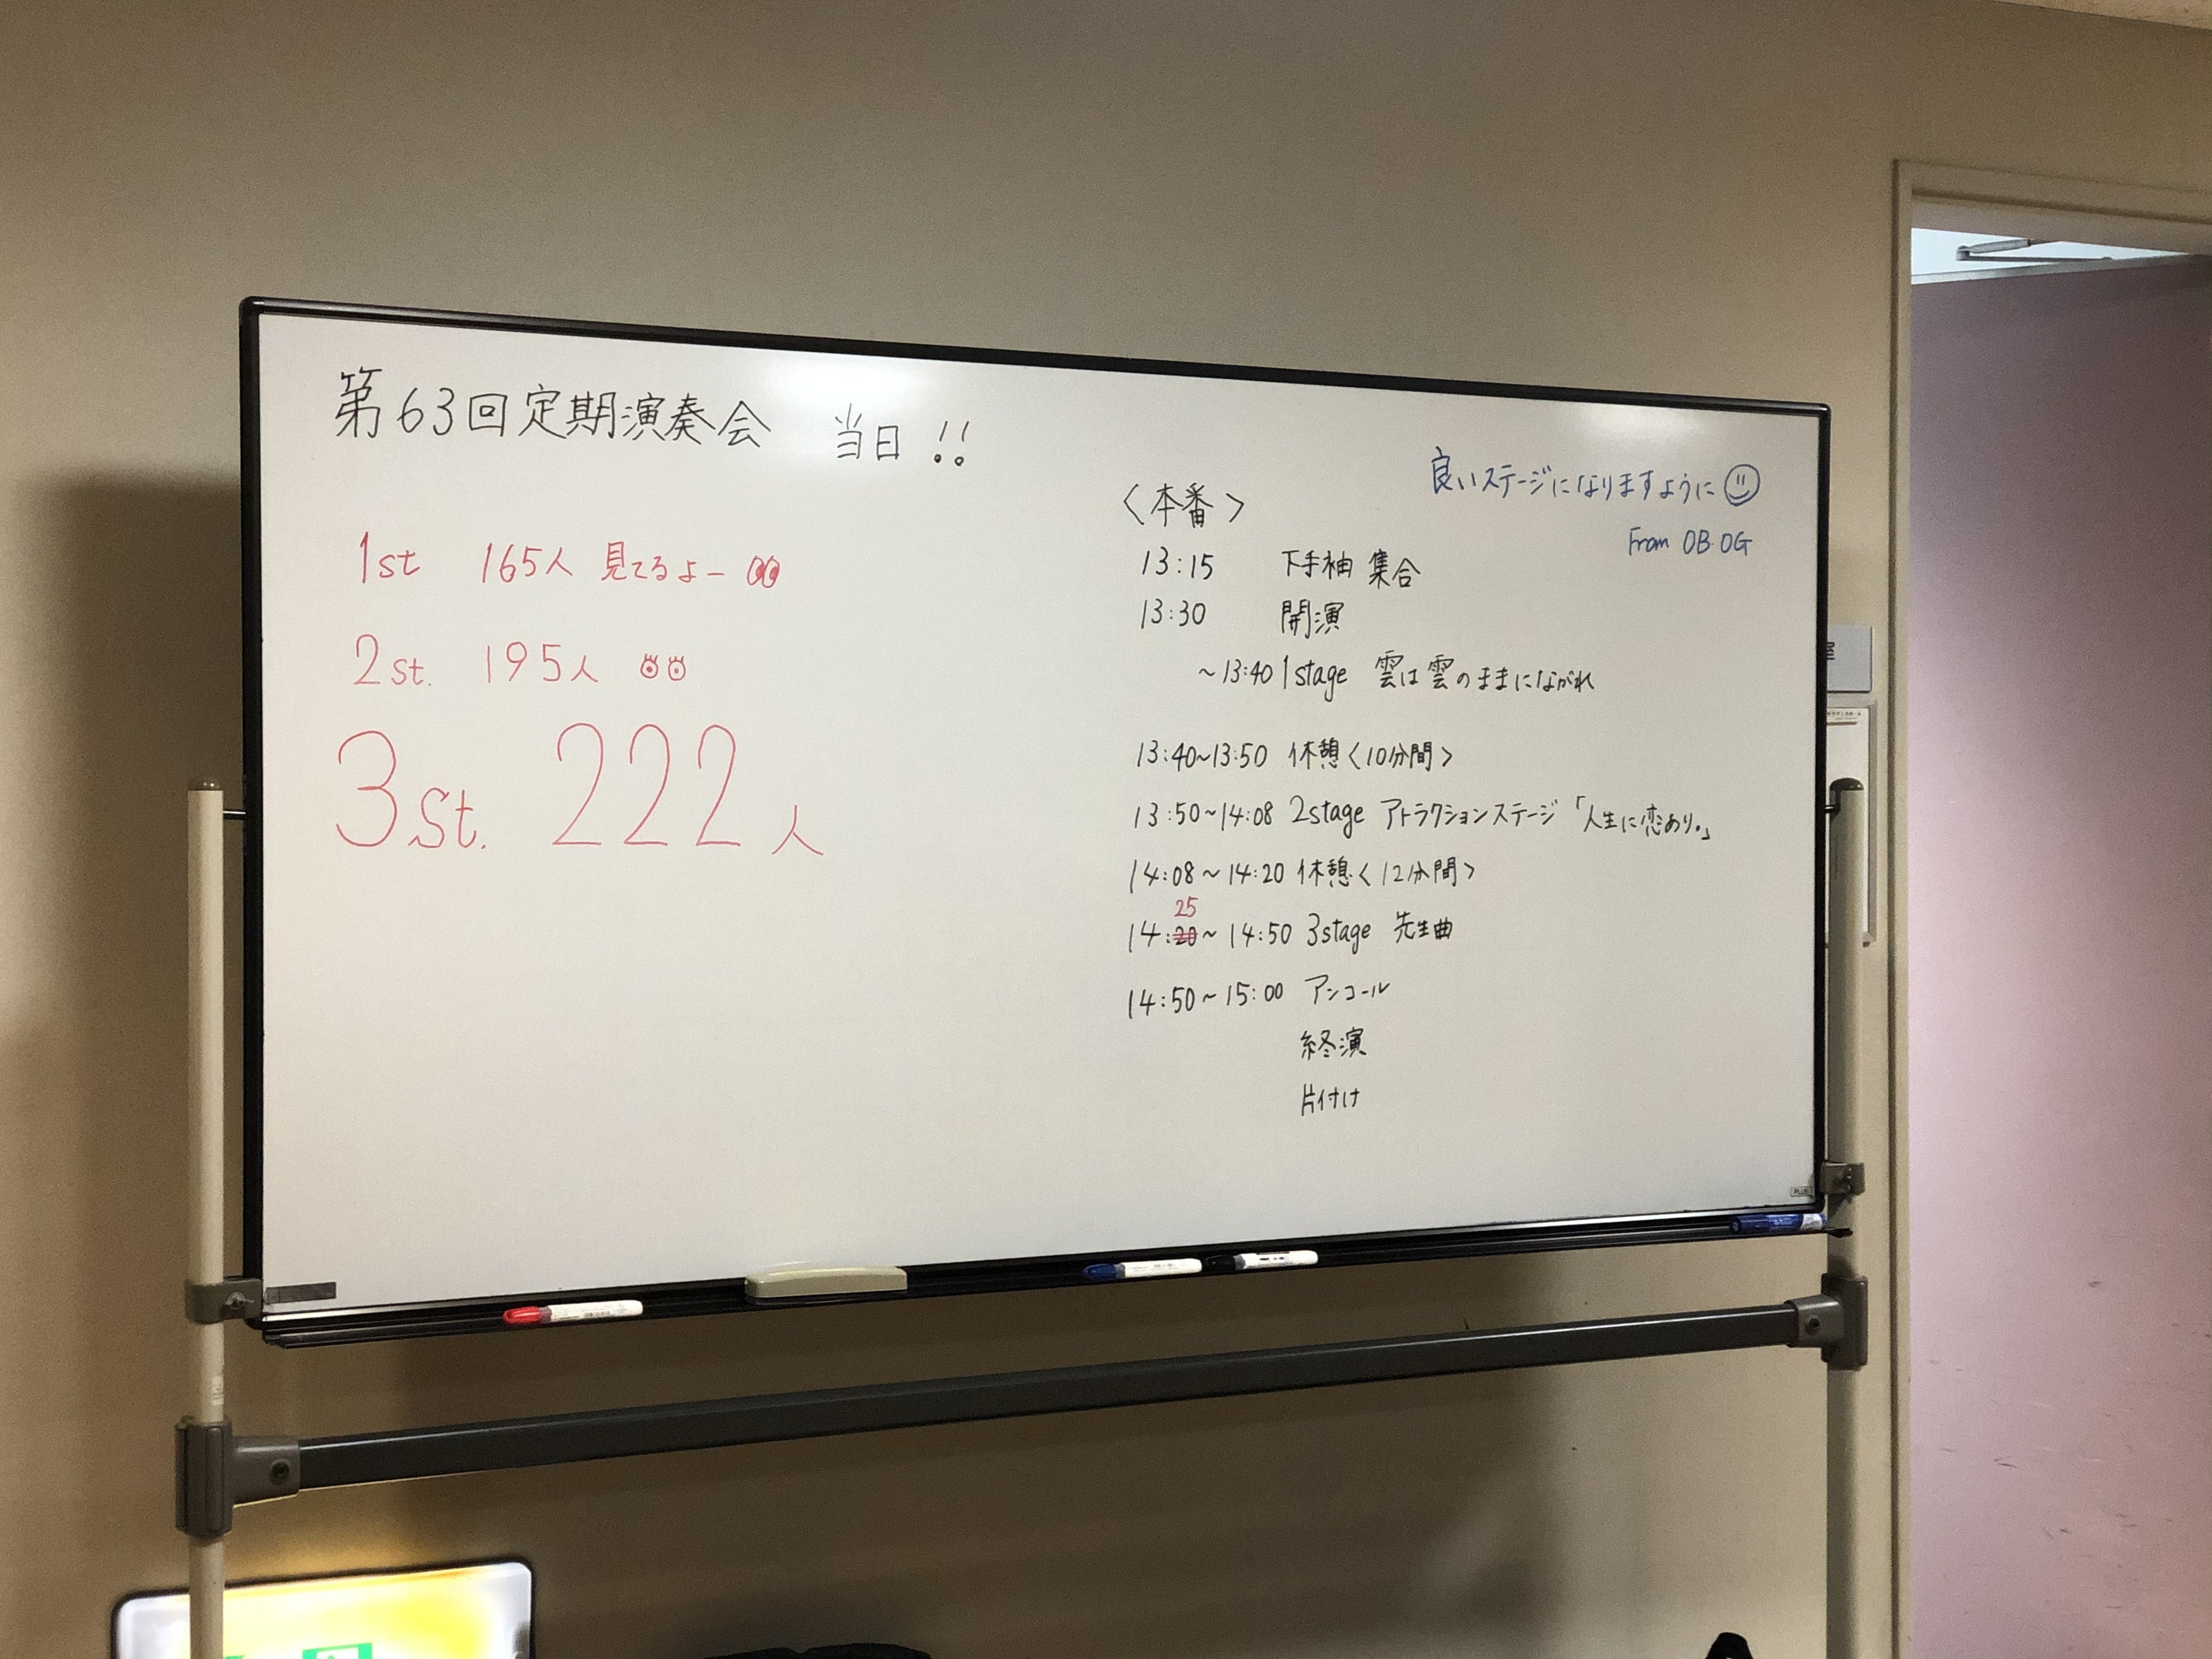 第63回定期演奏会 当日!!
1st 165人 見てるよー
2st. 195人
3st. 222人
良いステージになりますように
From OB・OG
〈本番〉
13:15 下手袖 集合
13:30 開演
~13:40 1stage 雲は雲のままにながれ
13:40~13:50 休憩〈10分間〉
13:50~14:08 2stage アトラクションステージ「人生に恋あり。」
14:08~14:20 休憩〈12分間〉
25
14:20~14:50 3stage 先生曲
14:50~15:00 アンコール
終演
片付け
PLUS
室